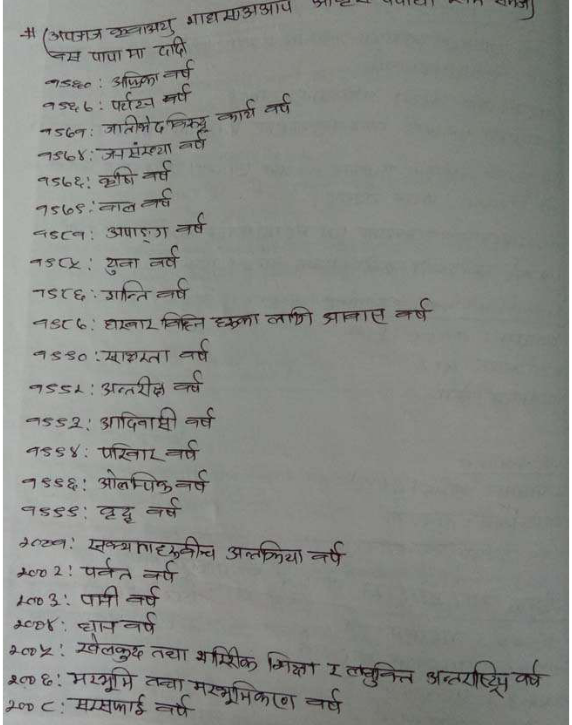 # (अपजज कृवाअयु शाधमाअआप
बस पापा मा दादि
१९६०: अफ्रिका वर्ष
१९६७: पर्यटन वर्ष
१९७१: जातीभेद विरुद्ध कार्य वर्ष
१९७४: जनसंख्या वर्ष
१९७६: कृषि वर्ष
१९७९: बाल वर्ष
१९८१: अपाङ्ग वर्ष
१९८५: युवा वर्ष
१९८६: शान्ति वर्ष
१९८७: घरवार विहिन हरुका लागी आवास वर्ष
१९९०: साक्षरता वर्ष
१९९२: अन्तरीक्ष वर्ष
१९९३: आदिवासी वर्ष
१९९४: परिवार वर्ष
१९९६: ओलम्पिक वर्ष
१९९९: वृद्ध वर्ष
२००१: सभ्यताहरुबीच अन्तक्रिया वर्ष
२००२: पर्वत वर्ष
२००३: पानी वर्ष
२००४: धान वर्ष
२००५: खेलकुद तथा शारिरीक शिक्षा र लघुवित्त अन्तराष्ट्रिय वर्ष
२००६: मरभूमि तथा मरभूमिकरण वर्ष
२००८: सरसफाई वर्ष